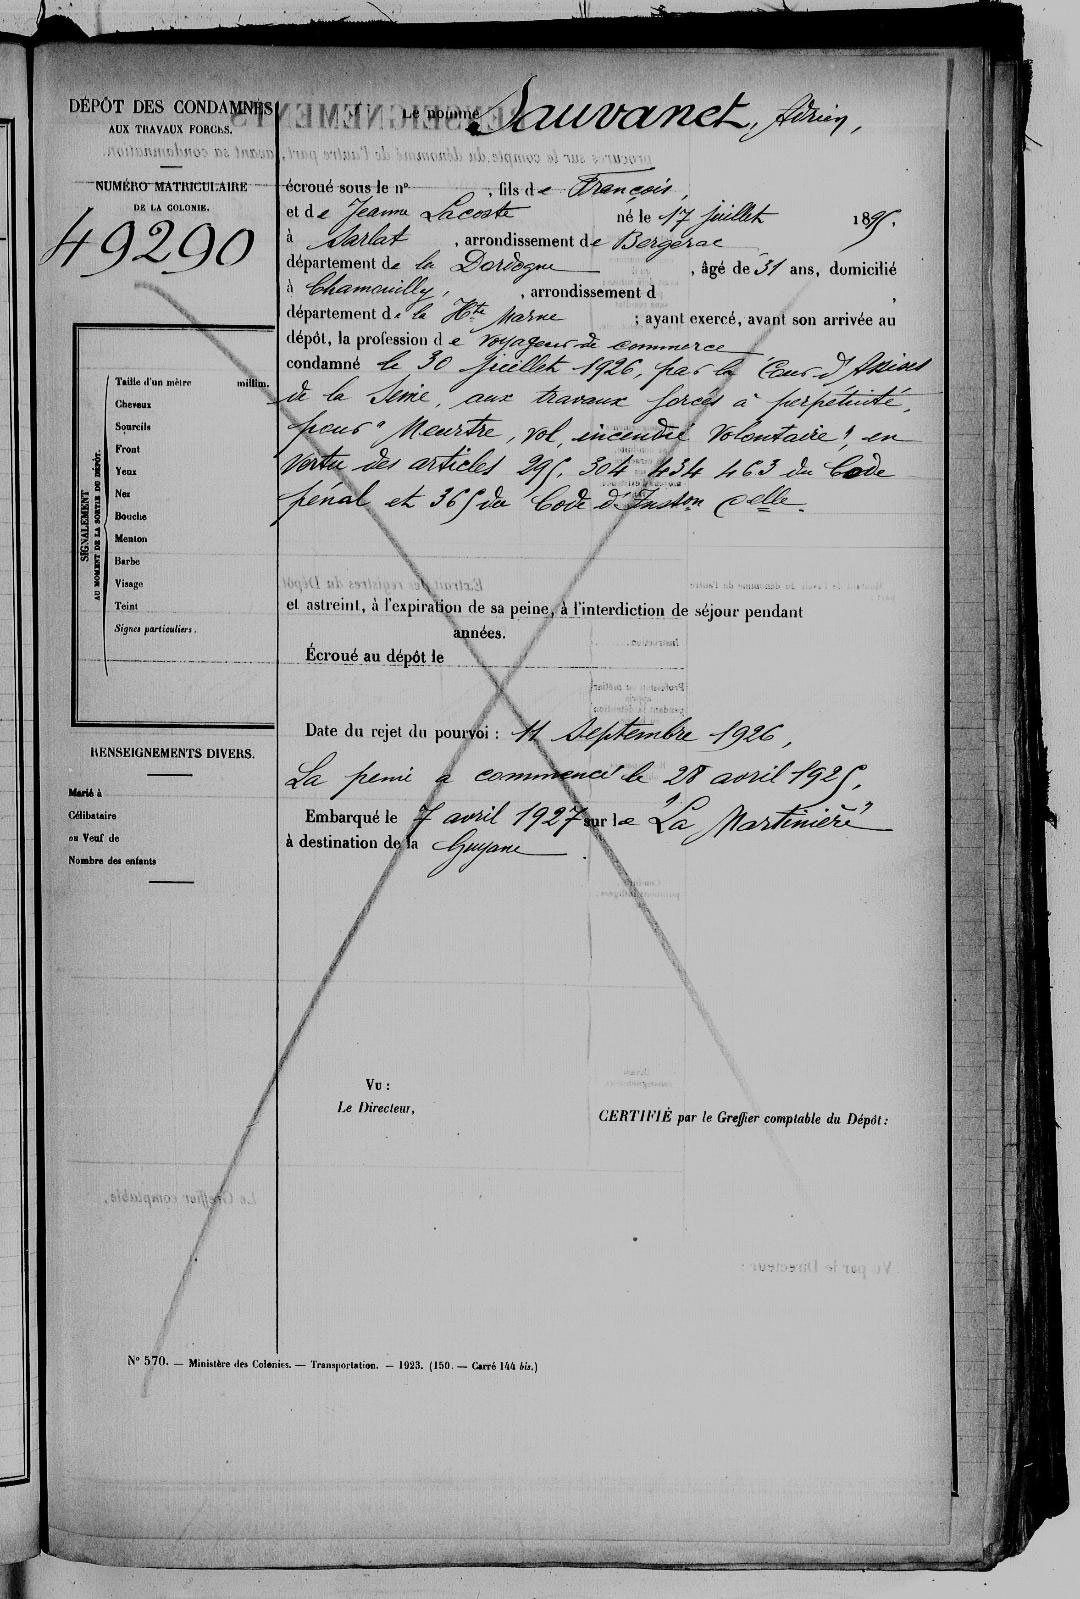 DÉPÔT DES CONDAMNÉS
AUX TRAVAUX FORCÉS.
NUMÉRO MATRICULAIRE
DE LA COLONIE.
49290
SIGNALEMENT
AU MOMENT DE LA SORTIE DU DÉPÔT.
Taille d'un mètre millim.
Cheveux
Sourcils
Front
Yeux
Nez
Bouche
Menton
Barbe
Visage
Teint
Signes particuliers.
RENSEIGNEMENTS DIVERS.
Marié à
Célibataire
ou Veuf de
Nombre des enfants
Le nommé Sauvanet, Adrien,
écroué sous le n° , fils de François,
et de Jeanne Lacoste né le 17 juillet 1895.
à Sarlat , arrondissement de Bergerac
département de la Dordogne , âgé de 31 ans, domicilié
à Chamouilly, , arrondissement d ,
département de la Hte Marne ; ayant exercé, avant son arrivée au
dépôt, la profession de voyageur de commerce
condamné le 30 juillet 1926, par la Cour d'Assises
de la Seine, aux travaux forcés à perpétuité,
pour "Meurtre, vol, incendie volontaire", en
vertu des articles 295, 304 434 463 du Code
pénal et 365 du Code d'Inston Celle.
et astreint, à l'expiration de sa peine, à l'interdiction de séjour pendant
années.
Écroué au dépôt le
Date du rejet du pourvoi : 11 Septembre 1926,
La peine a commencé le 28 avril 1925,
Embarqué le 7 avril 1927 sur le "La Martinière"
à destination de la Guyane
Vu :
Le Directeur,
CERTIFIÉ par le Greffier comptable du Dépôt :
N° 570. — Ministère des Colonies. — Transportation. — 1923. (150. — Carré 144 bis.)